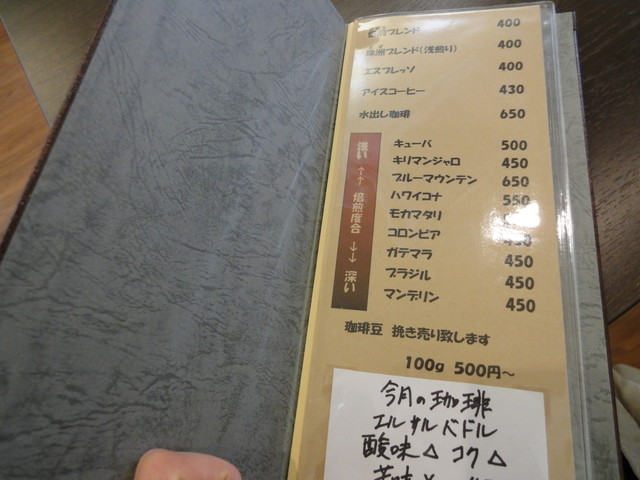 ブレンド 400
珠洲ブレンド(浅煎り) 400
エスプレッソ 400
アイスコーヒー 430
水出し珈琲 650
浅い ←← 焙煎度合 →→ 深い
キューバ 500
キリマンジャロ 450
ブルーマウンテン 650
ハワイコナ 550
モカマタリ
コロンビア 450
ガテマラ 450
ブラジル 450
マンデリン 450
珈琲豆 挽き売り致します
100g 500円〜
今月の珈琲
エルサルバドル
酸味△ コク△
苦味